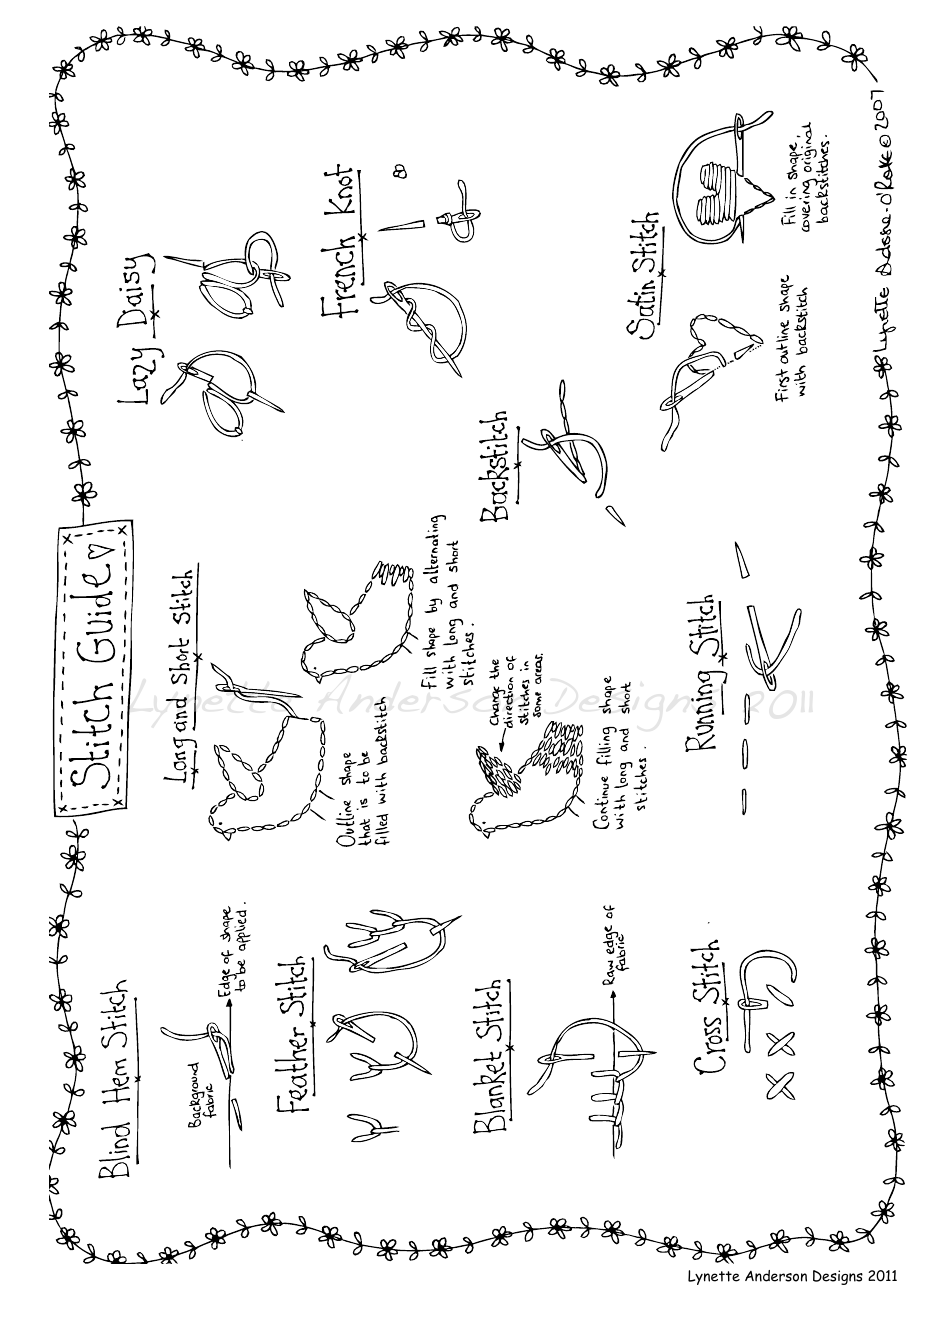 Stitch Guide
Blind Hem Stitch
Background
fabric
Edge of shape
to be applied.
Feather Stitch
Blanket Stitch
Raw edge of
fabric
Cross Stitch
Long and Short Stitch
Outline shape
that is to be
filled with backstitch
Fill shape by alternating
with long and short
stitches.
Change the
direction of
stitches in
some areas.
Continue filling shape
with long and short
stitches.
Running Stitch
Lazy Daisy
French Knot
Backstitch
Satin Stitch
First outline shape
with backstitch
Fill in shape,
covering original
backstitches.
Lynette Anderson Designs 2011
Lynette © 2007
Lynette Anderson Designs 2011